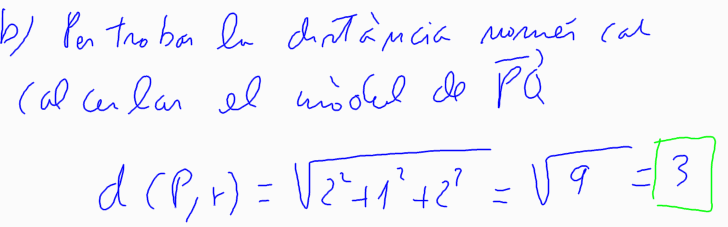 b) Per trobar la distància només cal
calcular el mòdul de \overrightarrow{PQ}
d(P,r) = √(2²+1²+2²) = √9 = 3